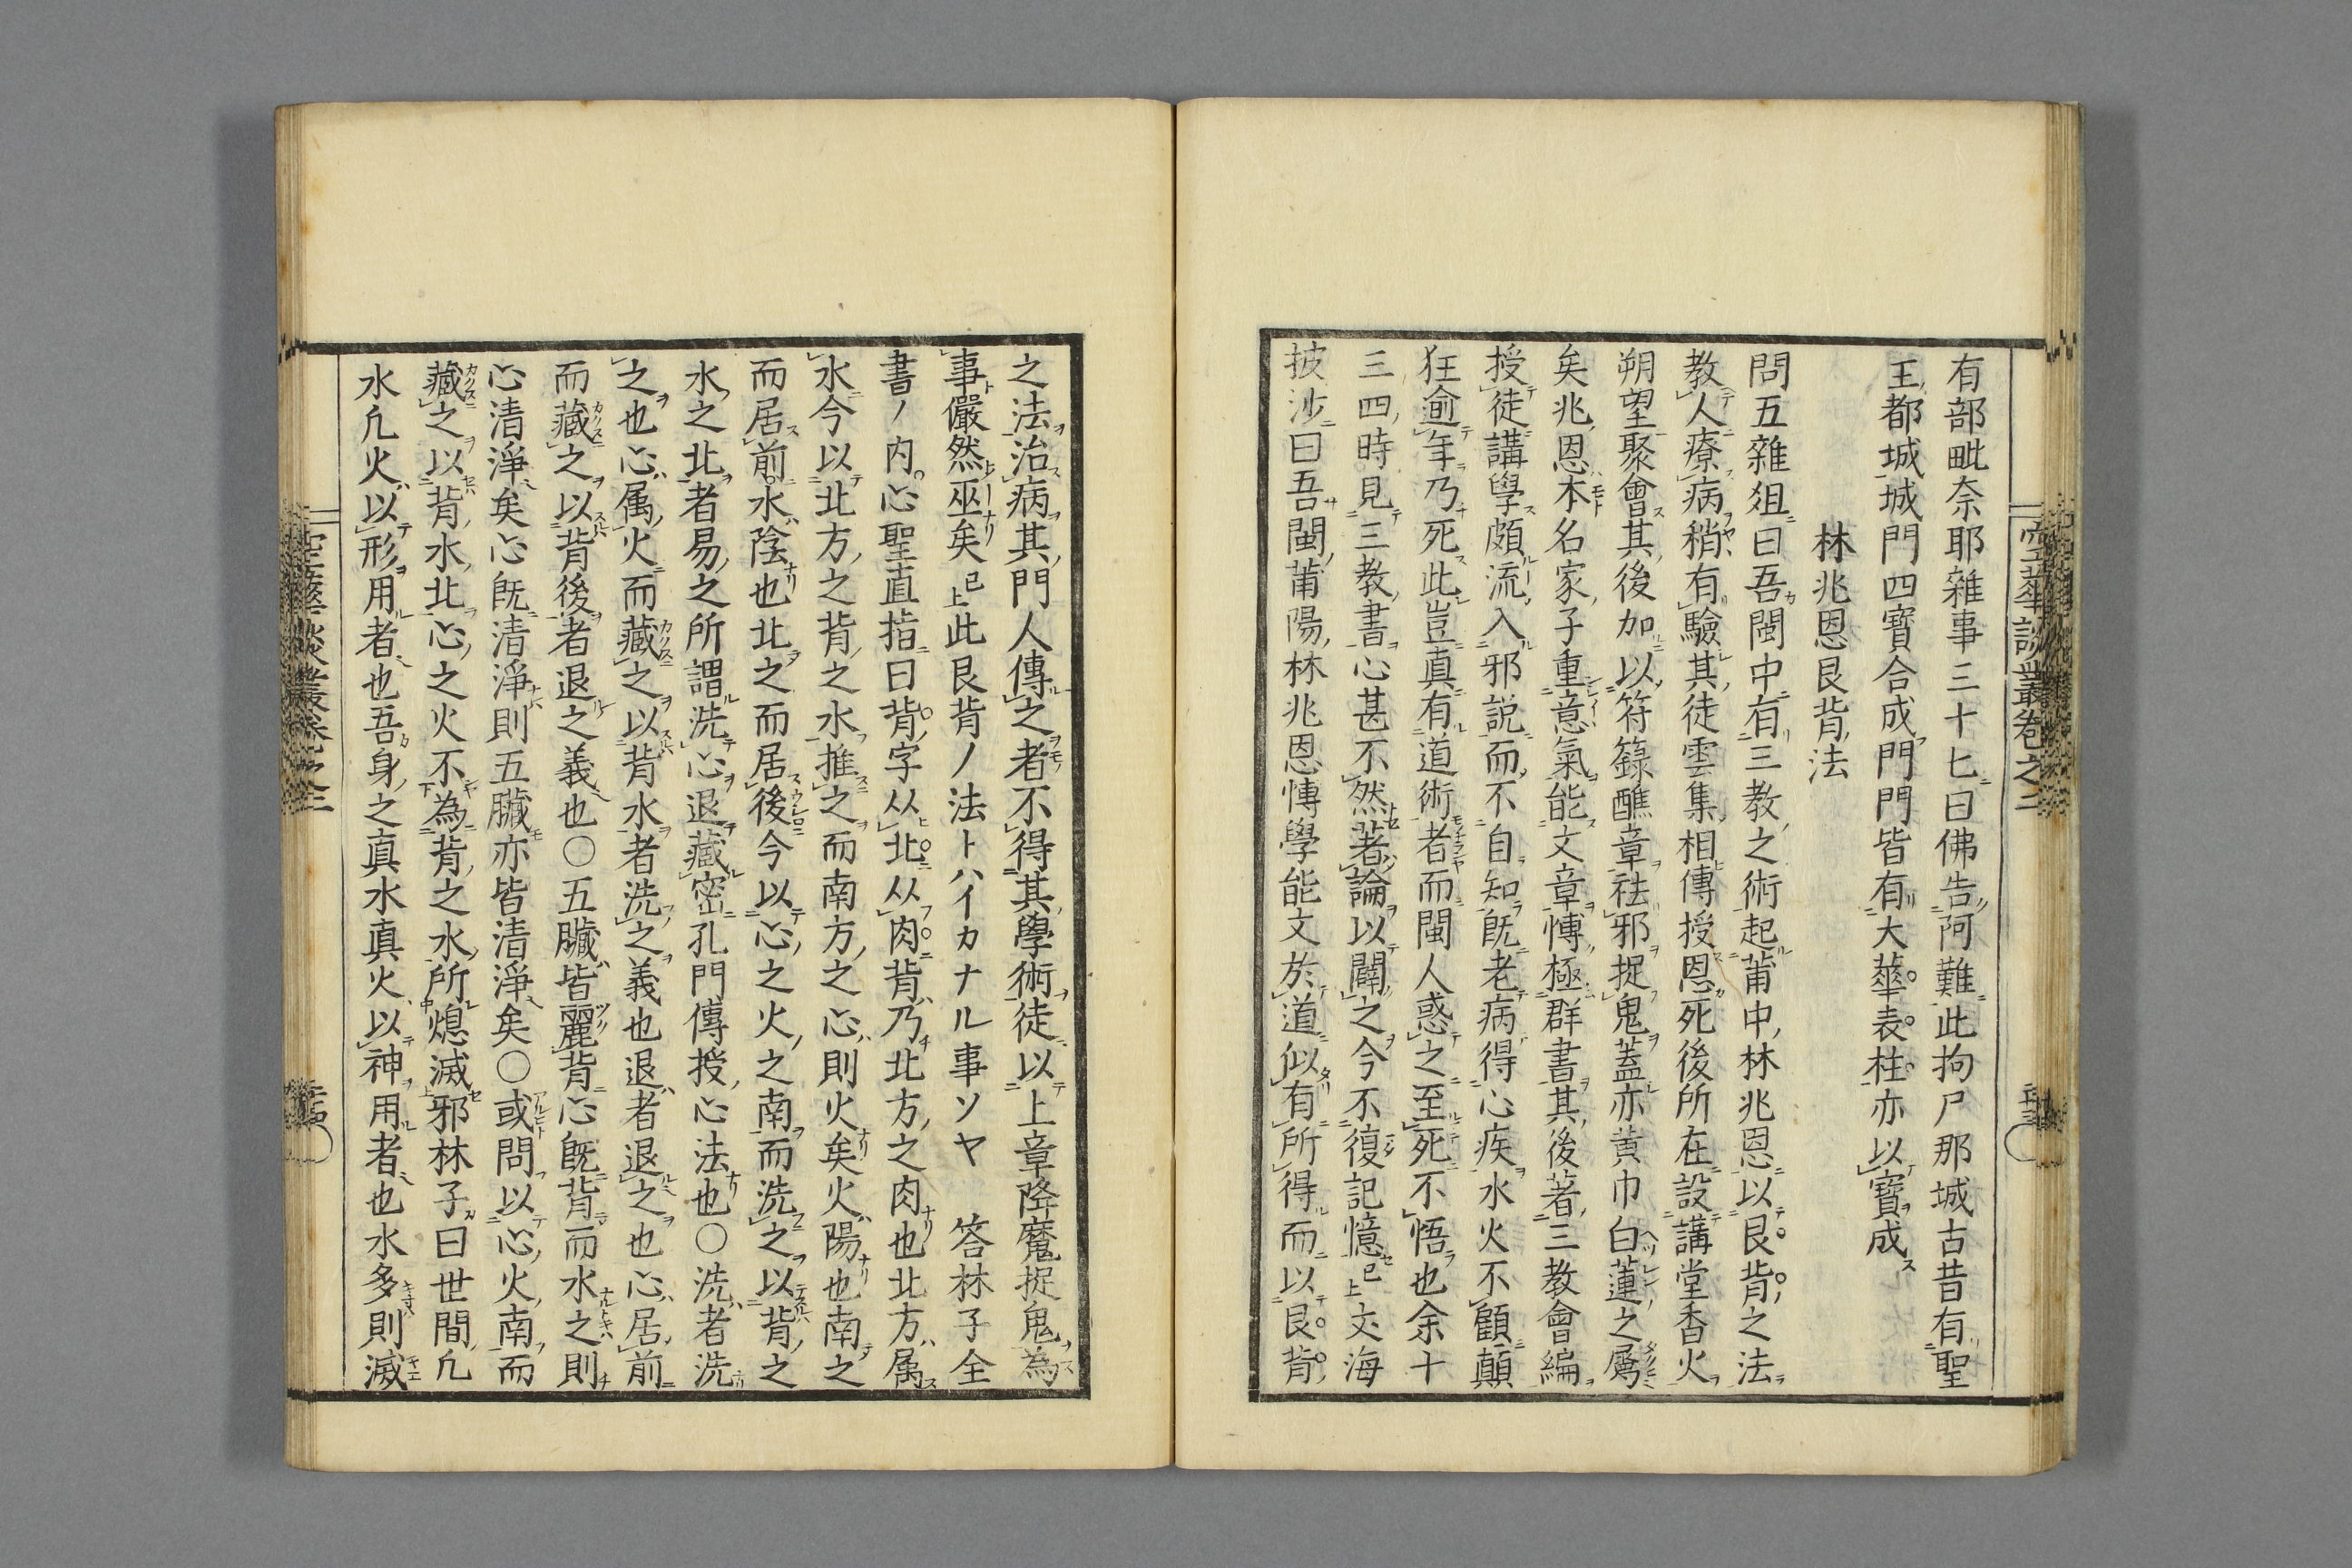 空華談叢卷之二
有部毗奈耶雜事三十七曰佛告阿難此拘尸那城古昔有聖
王都城城門四寶合成門門皆有大華表柱亦以寶成
林兆恩艮背法
問五雜俎曰吾閩中有三教之術起莆中林兆恩以艮背之法
教人療病稍有驗其徒雲集相傳授恩死後所在設講堂香火
朔望聚會其後加以符籙醮章祛邪捉鬼蓋亦黄巾白蓮之屬
矣兆恩本名家子重意氣能文章博極群書其後著三教會編
授徒講學頗流入邪説而不自知既老病得心疾水火不顧顛
狂逾年乃死此豈真有道術者而閩人惑之至死不悟也余十
三四時見三教書心甚不然著論以闢之今不復記憶已上文海
披沙曰吾閩莆陽林兆恩博學能文於道似有所得而以艮背
之法治病其門人傳之者不得其學術徒以上章降魔捉鬼為
事儼然巫矣已上此艮背ノ法トハイカナル事ソヤ　答林子全
書ノ内心聖直指曰背字从北从肉背乃北方之肉也北方属
水今以北方之背之水推之而南方之心則火矣火陽也南之
而居前水陰也北之而居後今以心之火之南而洗之以背之
水之北者易之所謂洗心退藏密孔門傳授心法也○洗者洗
之也心属火而藏之以背水者洗之義也退者退之也心居前
而藏之以背後者退之義也○五臟皆麗背心既背而水之則
心清淨矣心既清淨則五臟亦皆清淨矣○或問以心火南而
藏之以背水北心之火不為背之水所熄滅邪林子曰世間凡
水凡火以形用者也吾身之真水真火以神用者也水多則滅
空華談叢卷之三